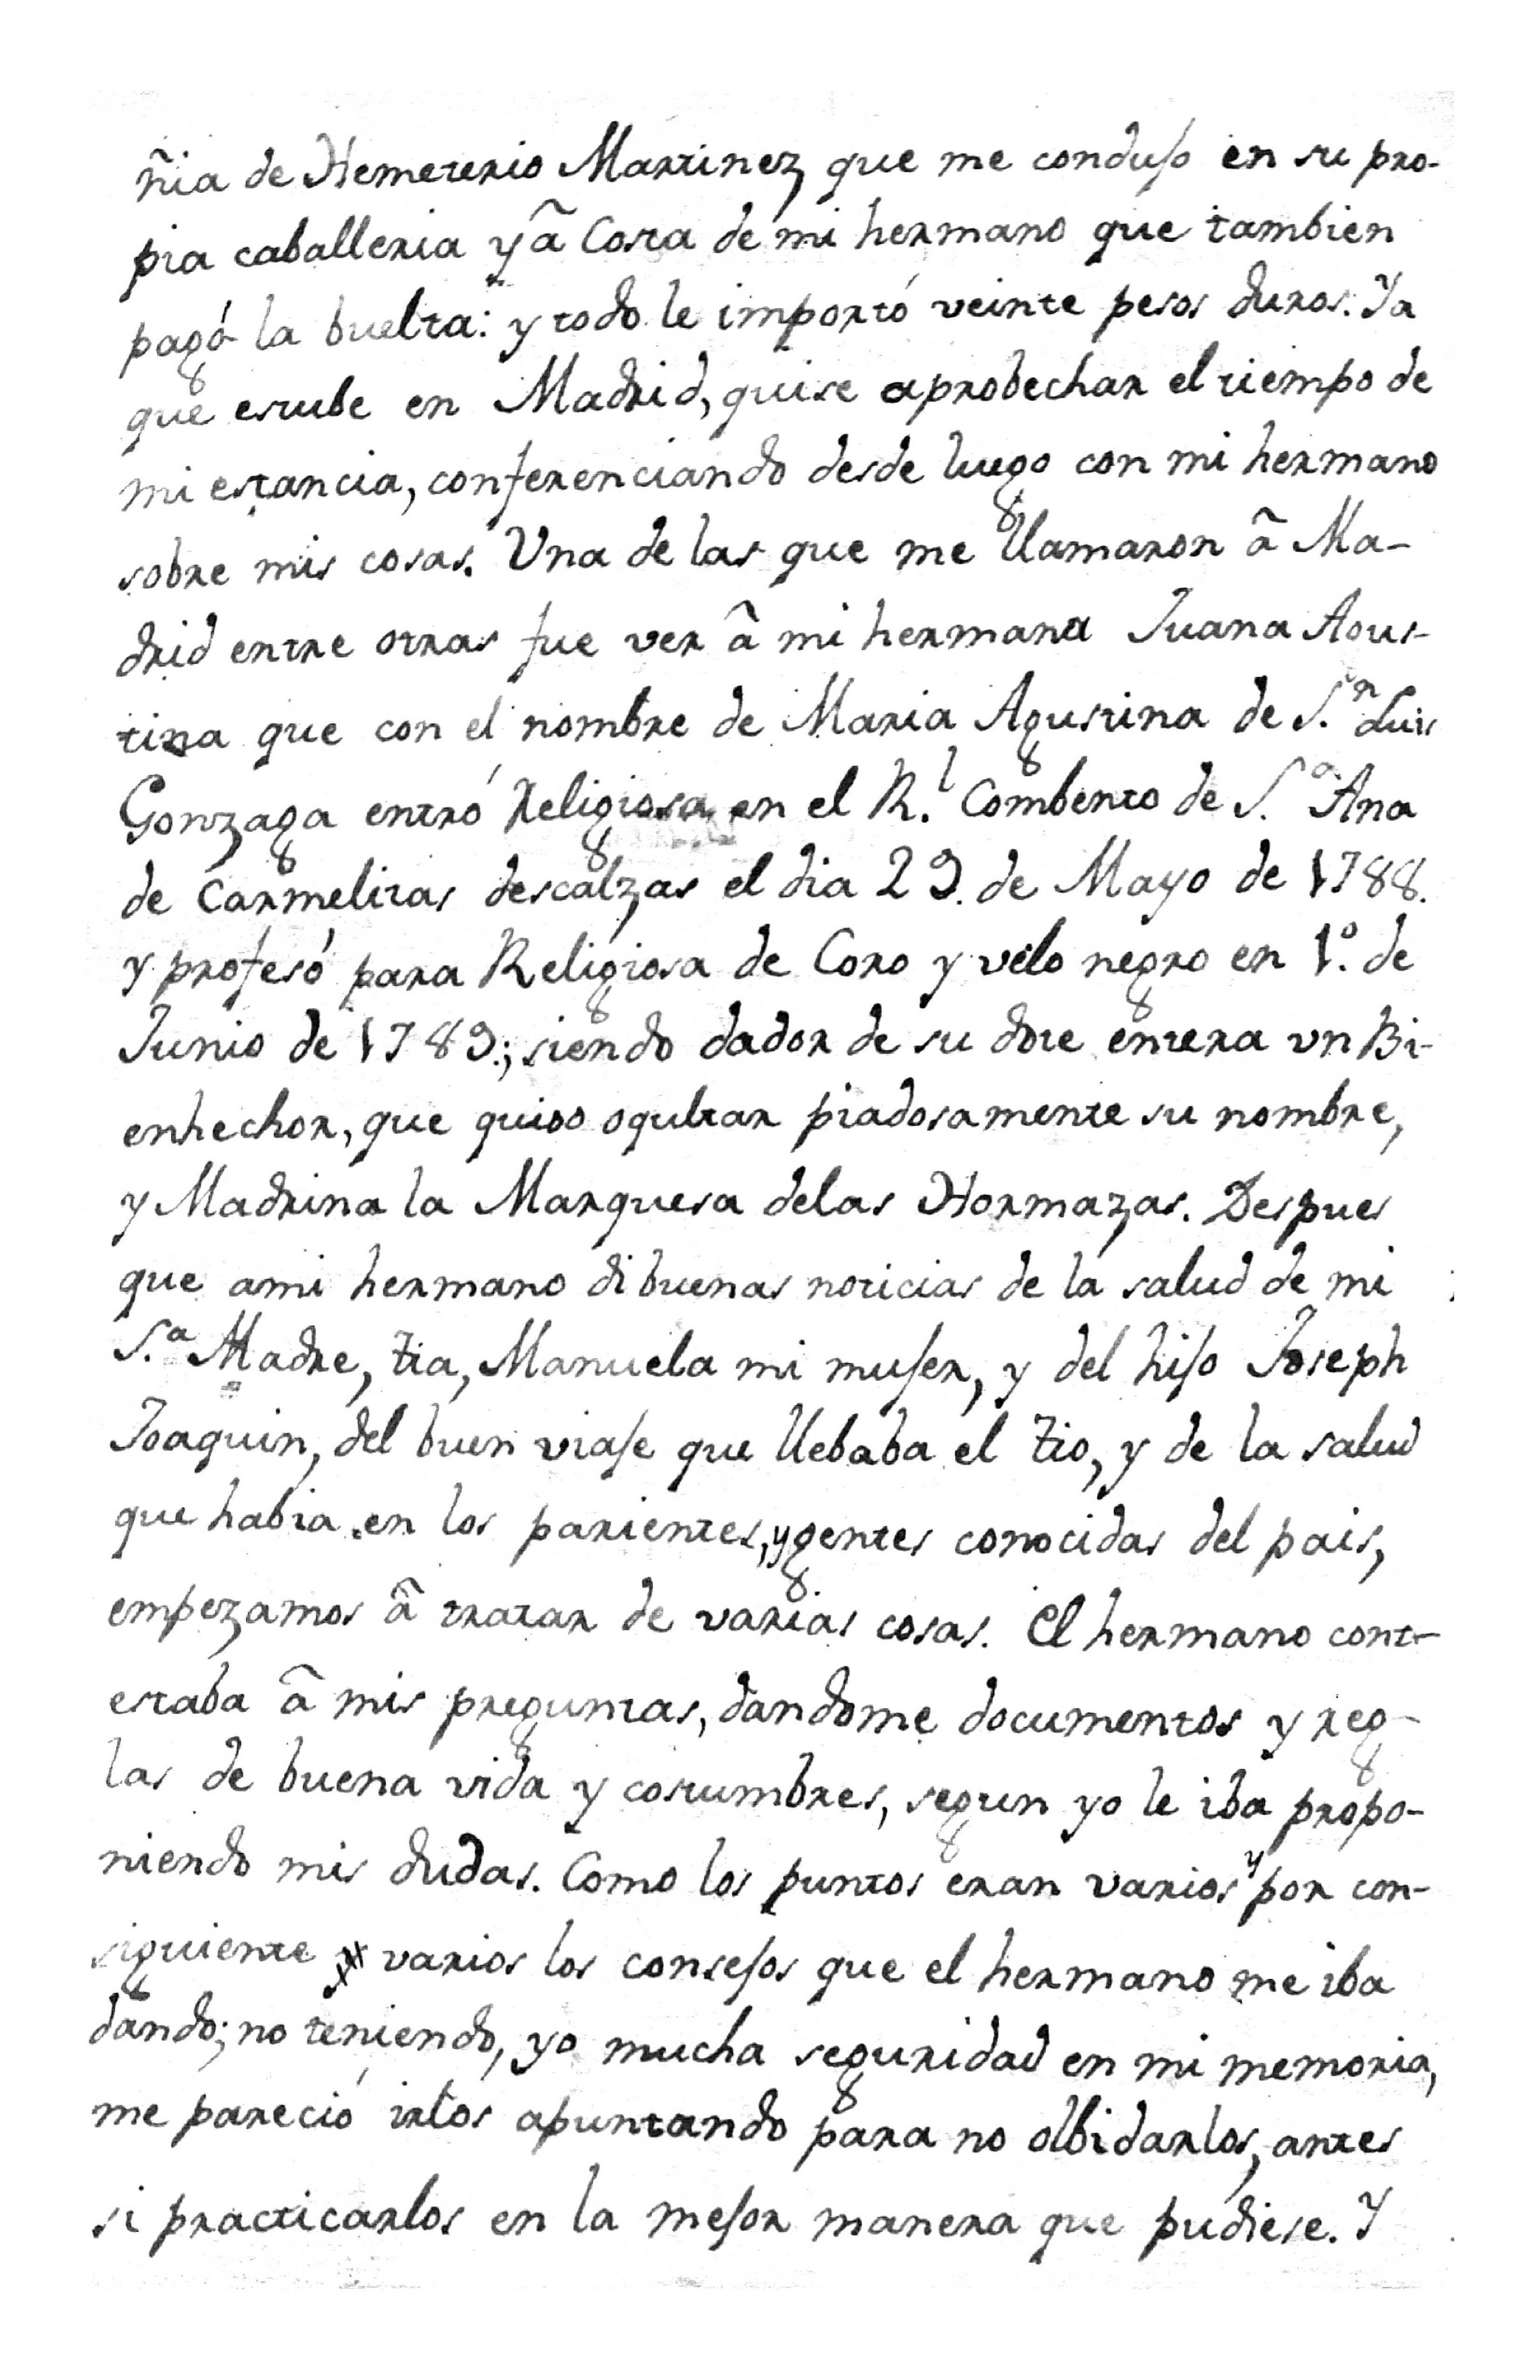 ñia de Hemeterio Martinez que me condujo en su pro-
pia caballeria y â Costa de mi hermano que tambien
pagó la buelta: y todo le importó veinte pesos duros. Ya
que estube en Madrid, quise aprobechar el tiempo de
mi estancia, conferenciando desde luego con mi hermano
sobre mis cosas. Una de las que me llamaron â Ma-
drid entre otras fue ver â mi hermana Juana Agus-
tina que con el nombre de Maria Agustina de S.n Luis
Gonzaga entró Religiosa en el R.l Combento de S.a Ana
de Carmelitas descalzas el dia 29. de Mayo de 1788.
y profesó para Religiosa de Coro y velo negro en 1.o de
Junio de 1789.; siendo dador de su dote entera vn Bi-
enhechor, que quiso ocultar piadosamente su nombre,
y Madrina la Marquesa delas Hormazas. Despues
que ami hermano di buenas noticias de la salud de mi
S.a Madre, tia, Manuela mi mujer, y del hijo Joseph
Joaquin, del buen viaje que llebaba el tio, y de la salud
que habia en los parientes, y gentes conocidas del pais,
empezamos â tratar de varias cosas. El hermano cont-
estaba â mis preguntas, dandome documentos y reg-
las de buena vida y costumbres, segun yo le iba propo-
niendo mis dudas. Como los puntos eran varios y por con-
siguiente varios los consejos que el hermano me iba
dando; no teniendo, yo mucha seguridad en mi memoria,
me pareció irlos apuntando para no olbidarlos, antes
si practicarlos en la mejor manera que pudiese. Y